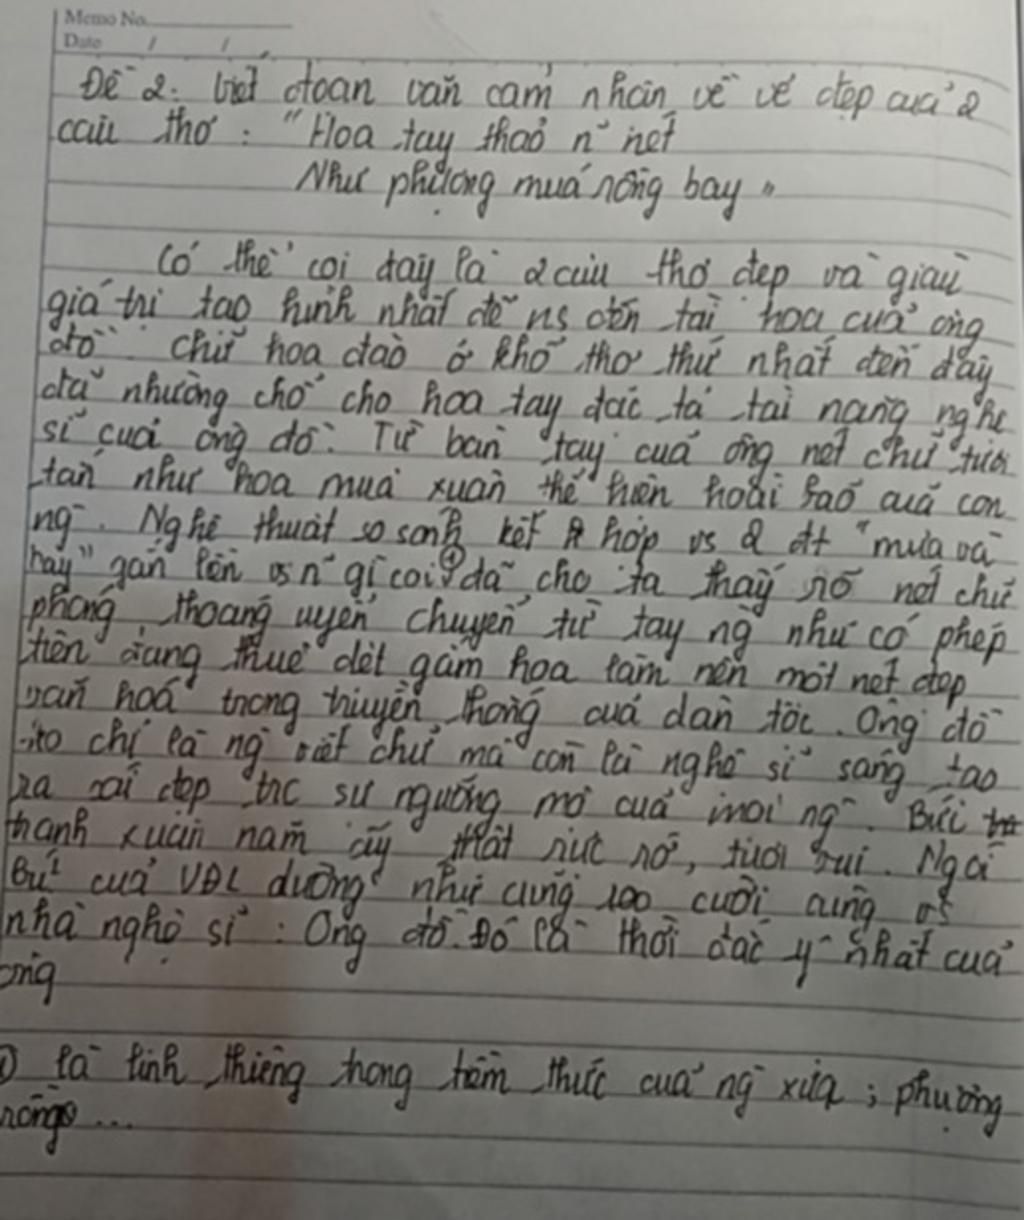 Memo No.
Date / /
Đề 2: Viết đoạn văn cảm nhận về vẻ đẹp của 2
câu thơ: "Hoa tay thảo n~ nét
Như phượng múa rồng bay"
Có thể coi đây là 2 câu thơ đẹp và giàu
giá trị tạo hình nhất để ns đến tài hoa của ông
đồ. Chữ hoa đào ở khổ thơ thứ nhất đến đây
đã nhường chỗ cho hoa tay đặc tả tài năng nghệ
sĩ của ông đồ. Từ bàn tay của ông nét chữ tươi
tắn như hoa mùa xuân thể hiện hoài bão của con
ng~. Nghệ thuật so sánh kết hợp vs 2 đt "múa và
bay" gắn liền vs n~ gì coi ① đã cho ta thấy rõ nét chữ
phóng thoáng uyển chuyển từ tay ng~ như có phép
tiên đang thuê dệt gấm hoa làm nên một nét đẹp
văn hoá trong truyền thống của dân tộc. Ông đồ
ko chỉ là ng~ viết chữ mà còn là nghệ sĩ sáng tạo
ra cái đẹp trc sự ngưỡng mộ của mọi ng~. Bức
tranh xuân năm ấy thật rực rỡ, tươi vui. Ngòi
bút của VĐL dường như cũng reo cười cùng vs
nhà nghệ sĩ: Ông đồ. Đó là thời đắc ý nhất của
ông
① là linh thiêng trong tiềm thức của ng~ xưa; phượng
rồng...